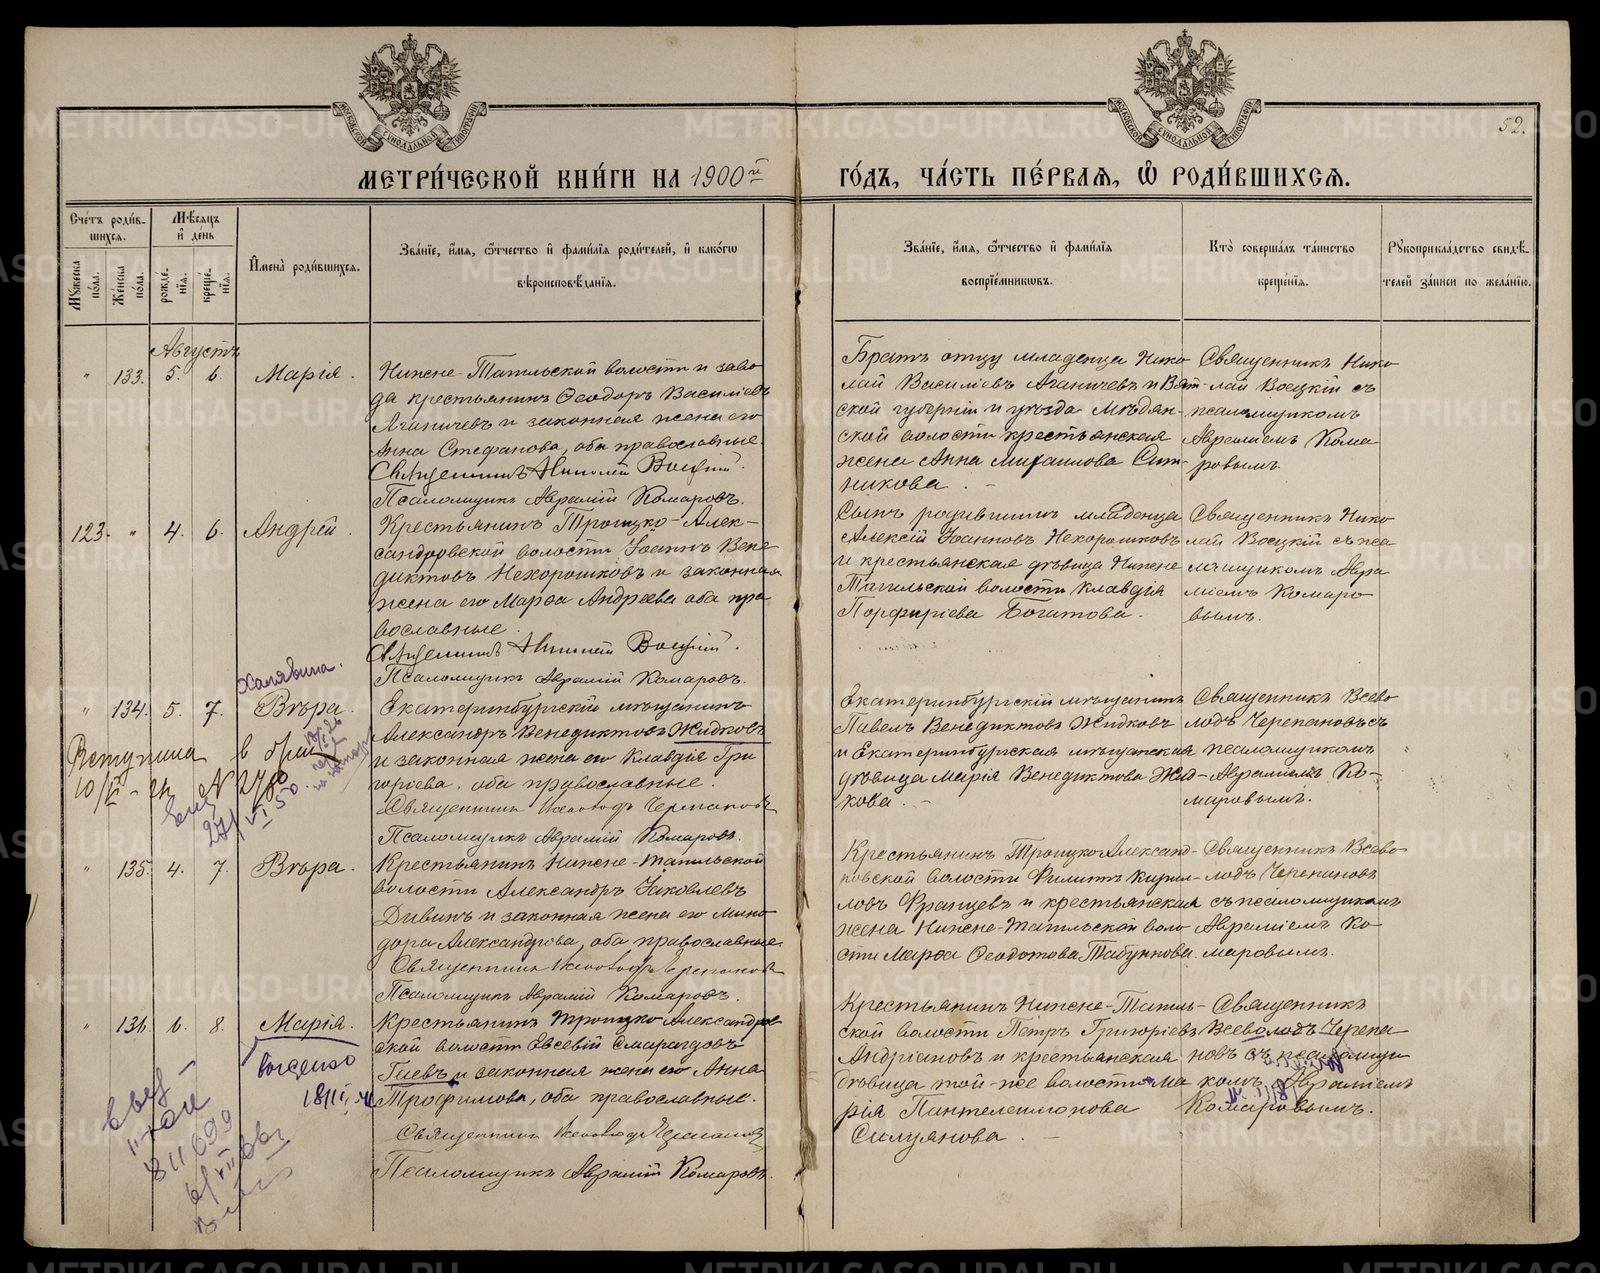 52.
МЕТРИ́ЧЕСКОЙ КНИ́ГИ НА 1900й
ГО́ДЪ, ЧА́СТЬ ПЕ́РВАЯ, Ѡ РОДИ́ВШИХСЯ.
Сче́тъ роди́в-
шихся.
Му́жеска по́ла.
Же́нска по́ла.
Мѣ́сяцъ и де́нь
рожде́-
нія.
креще́-
нія.
Имена̀ роди́вшихся.
Зва́ніе, и́мя, ѻ́тчество и фами́лія роди́телей, и како́гѡ
вѣроисповѣ́данія.
Зва́ніе, и́мя, ѻ́тчество и фами́лія
воспріе́мниковъ.
Кто̀ соверша́лъ та́инство
креще́нія.
Рукоприкла́дство свидѣ́-
телей за́писи по жела́нію.
Августъ
" 133. 5. 6. Марія.
Нижне-Тагильской волости и заво
да крестьянинъ Ѳеодоръ Василіевъ
Аганичевъ и законная жена его
Анна Стефанова, оба православные.
Священникъ Николай Воецкій.
Псаломщикъ Аврамій Комаровъ.
Братъ отцу младенца Нико
лай Василіевъ Аганичевъ и Вят-
ской губерніи и уѣзда Мѣдян-
ской волости крестьянская
жена Анна Михаилова Сит-
никова.
Священникъ Нико
лай Воецкій съ
псаломщикомъ
Авраміемъ Кома
ровымъ.
123. " 4. 6. Андрей.
Крестьянинъ Троицко-Алек-
сандровской волости Іоаннъ Вене
диктовъ Нехорошковъ и законная
жена его Марѳа Андреева оба пра
вославные.
Священникъ Николай Воецкій.
Псаломщикъ Аврамій Комаровъ.
Сынъ родившимъ младенца
Алексій Іоанновъ Нехорошковъ
и крестьянская дѣвица Нижне
Тагильской волости Клавдія
Порфиріева Богатова.
Священникъ Нико
лай Воецкій съ пса
ломщикомъ Авра
міемъ Комаро
вымъ.
Халявина.
" 134. 5. 7. Вѣра.
Вступила в брак
10/VI - 21 N 278
27/VI 50
Екатеринбургскій мѣщанинъ
Александръ Венедиктовъ Жидковъ
и законная жена его Клавдія Гри
горіева, оба православные.
Священникъ Всеволодъ Черепановъ
Псаломщикъ Аврамій Комаровъ.
Екатеринбургскій мѣщанинъ
Павелъ Венедиктовъ Жидковъ
и Екатеринбургская мѣщанская
дѣвица Марія Венедиктова Жид-
кова.
Священникъ Всево
лодъ Черепановъ съ
псаломщикомъ
Авраміемъ Ко-
маровымъ.
" 135. 4. 7. Вѣра.
Крестьянинъ Нижне-Тагильской
волости Александръ Іаковлевъ
Дивинъ и законная жена его Мино
дора Александрова, оба православные.
Священникъ Всеволодъ Черепановъ
Псаломщикъ Аврамій Комаровъ.
Крестьянинъ Троицко Александ-
ровской волости Филиппъ Кирил-
ловъ Францевъ и крестьянская
жена Нижне-Тагильской воло
сти Марѳа Ѳеодотова Табункова.
Священникъ Всево
лодъ Черепановъ
съ псаломщикомъ
Авраміемъ Ко
маровымъ.
" 136. 6. 8. Марія.
18/II
Крестьянинъ Троицко Александров
ской волости Евсевій Смарагдовъ
Гневъ и законная жена его Анна
Трофимова, оба православные.
Священникъ Всеволодъ Черепановъ
Псаломщикъ Аврамій Комаровъ.
Крестьянинъ Нижне-Тагиль-
ской волости Петръ Григоріевъ
Андріановъ и крестьянская
дѣвица той-же волости Ма
рія Пантелеимонова
Силуянова.
Священникъ
Всеволодъ Черепа
новъ съ псаломщи
комъ Авраміемъ
Комаровымъ.
METRIKI.GASO-URAL.RU